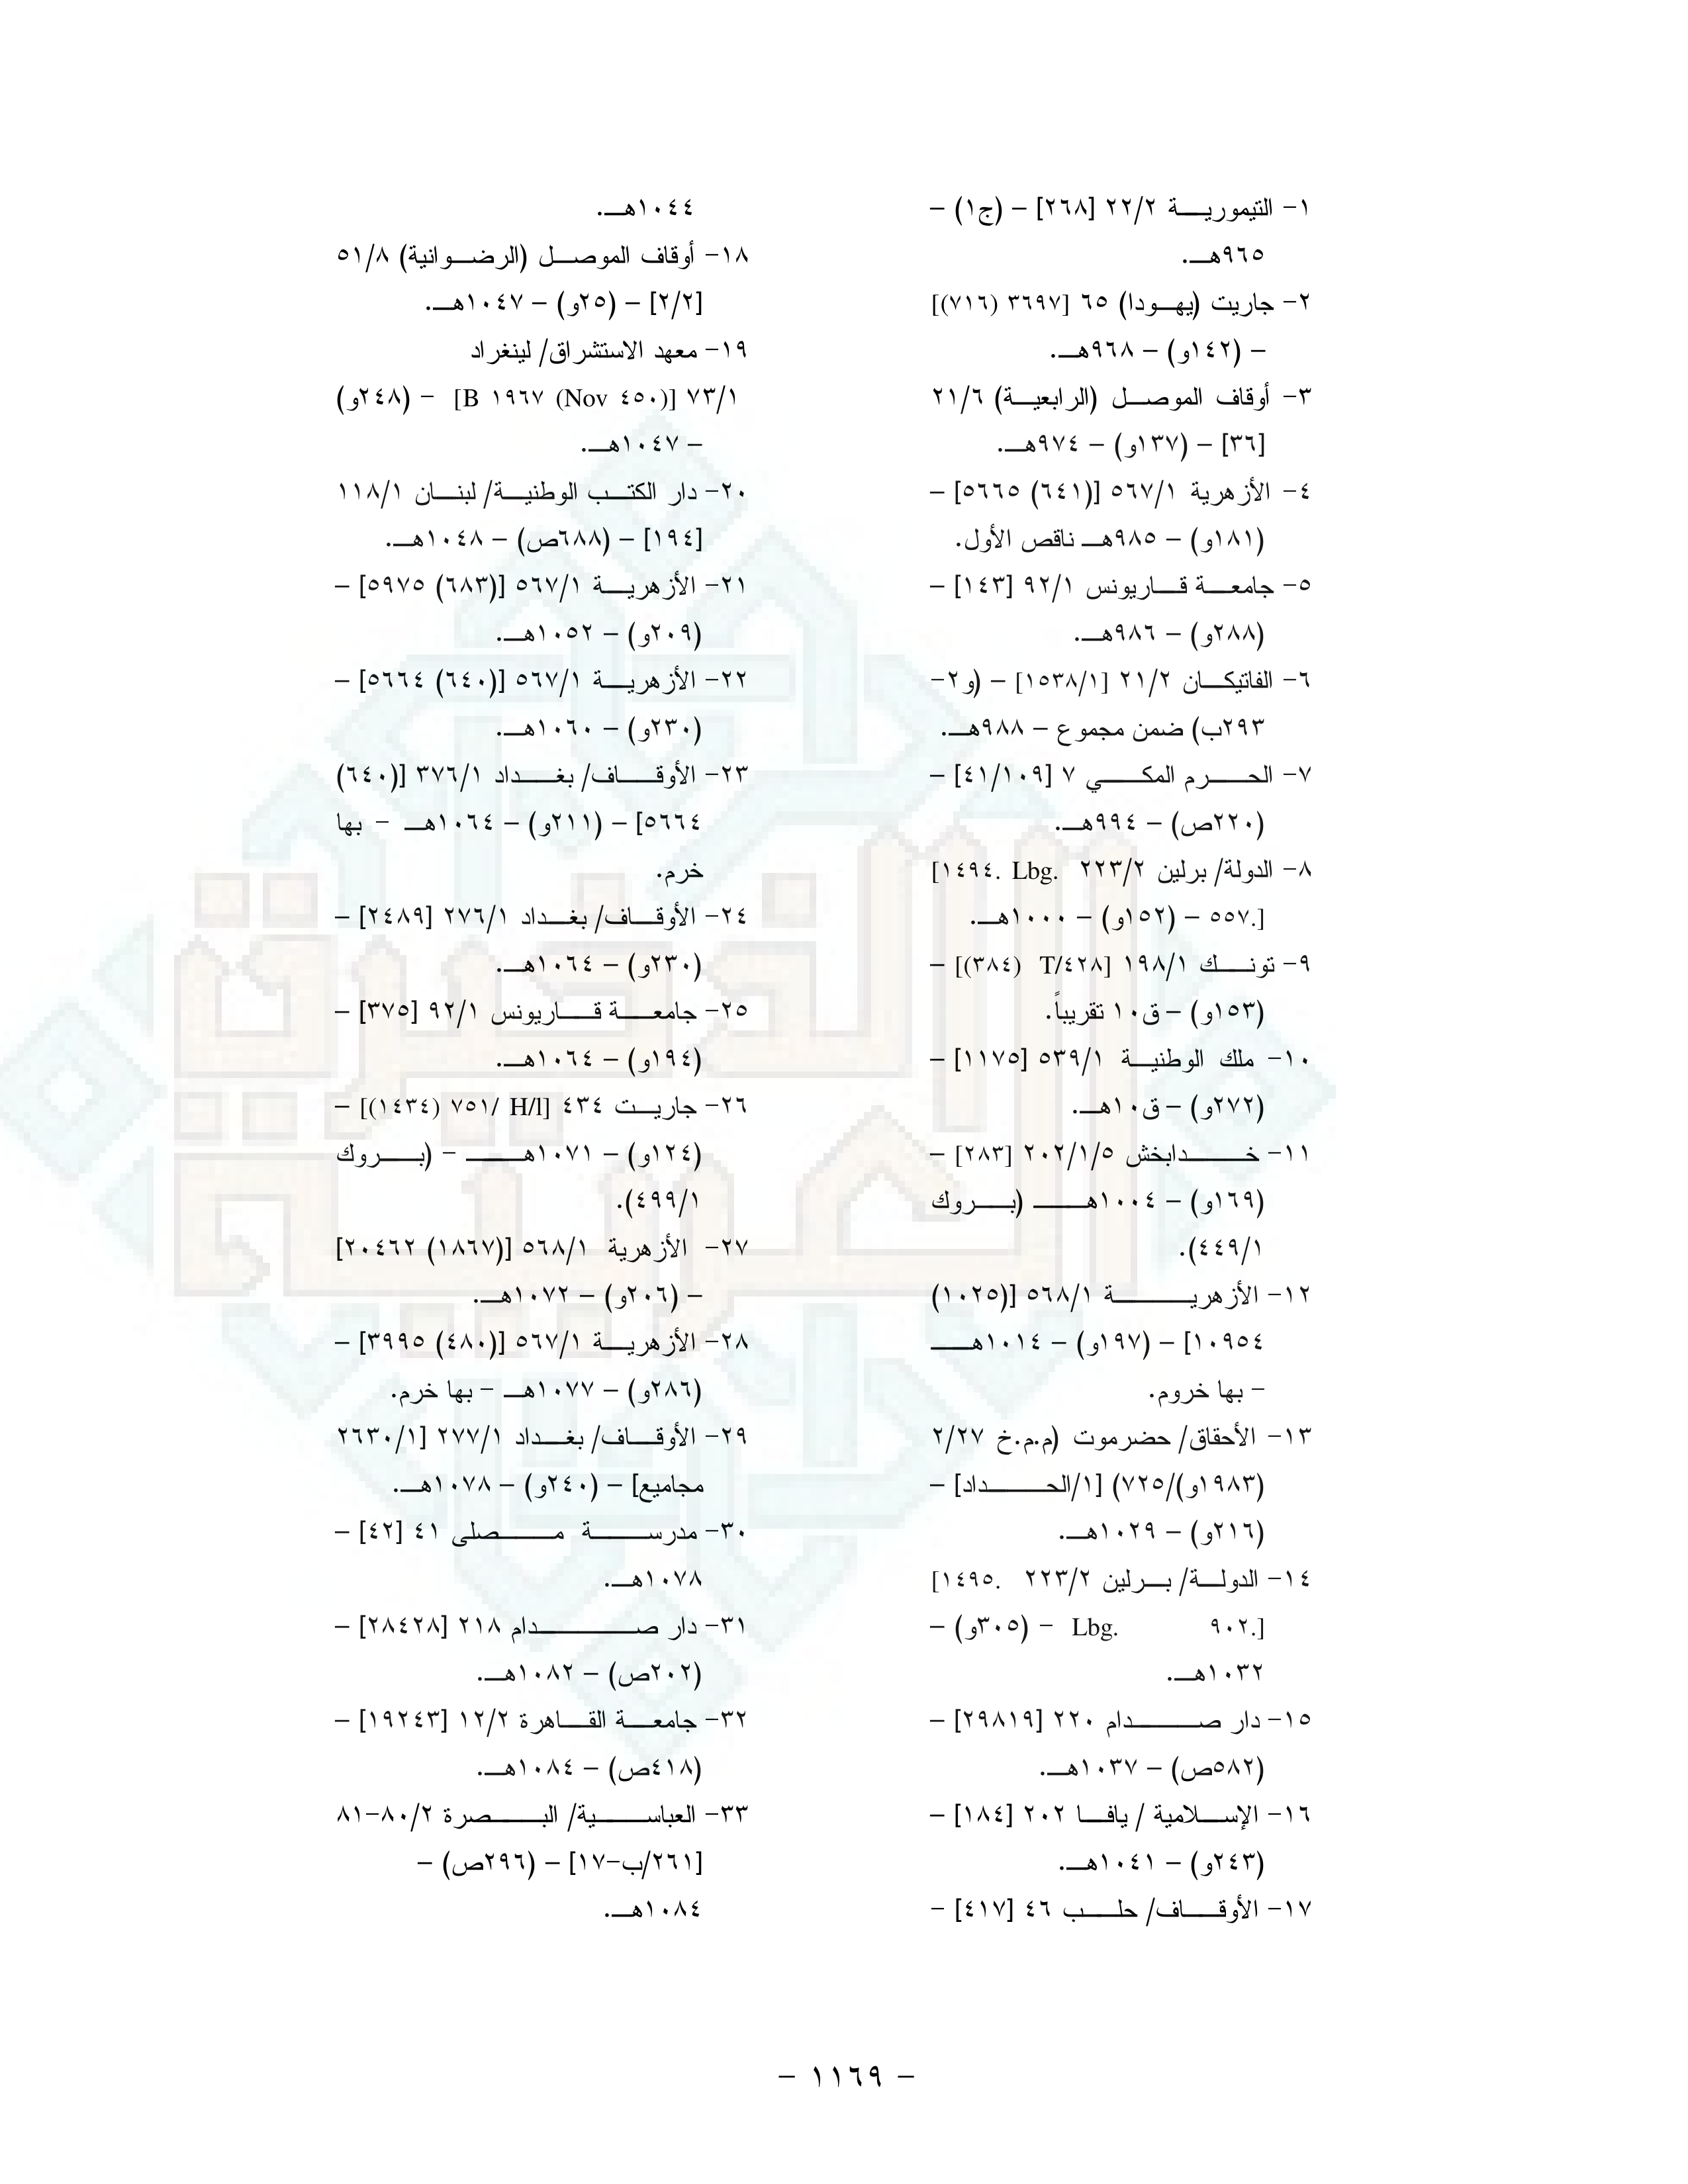 ١- التيمورية ٢٢/٢ [٢٦٨] – (ج١) –
٩٦٥هـ.
٢- جاريت (يهودا) ٦٥ [٣٦٩٧ (٧١٦)]
– (١٤٢و) – ٩٦٨هـ.
٣- أوقاف الموصل (الرابعية) ٢١/٦
[٣٦] – (١٣٧و) – ٩٧٤هـ.
٤- الأزهرية ٥٦٧/١ [(٦٤١) ٥٦٦٥] –
(١٨١و) – ٩٨٥هـ ناقص الأول.
٥- جامعة قاريونس ٩٢/١ [١٤٣] –
(٢٨٨و) – ٩٨٦هـ.
٦- الفاتيكان ٢١/٢ [١٥٣٨/١] – (و٢-
٢٩٣ب) ضمن مجموع – ٩٨٨هـ.
٧- الحرم المكي ٧ [٤١/١٠٩] –
(٢٢٠ص) – ٩٩٤هـ.
٨- الدولة/ برلين ٢٢٣/٢ [١٤٩٤. Lbg.
٥٥٧.] – (١٥٢و) – ١٠٠٠هـ.
٩- تونك ١٩٨/١ [T/٤٢٨ (٣٨٤)] –
(١٥٣و) – ق١٠ تقريباً.
١٠- ملك الوطنية ٥٣٩/١ [١١٧٥] –
(٢٧٢و) – ق١٠هـ.
١١- خدابخش ٢٠٢/١/٥ [٢٨٣] –
(١٦٩و) – ١٠٠٤هـ (بروك
٤٤٩/١).
١٢- الأزهرية ٥٦٨/١ [(١٠٢٥)
١٠٩٥٤] – (١٩٧و) – ١٠١٤هـ
– بها خروم.
١٣- الأحقاق/ حضرموت (م.م.خ ٢/٢٧
(١٩٨٣و)/٧٢٥) [١/الحداد] –
(٢١٦و) – ١٠٢٩هـ.
١٤- الدولة/ برلين ٢٢٣/٢ [١٤٩٥.
Lbg. ٩٠٢.] – (٣٠٥و) –
١٠٣٢هـ.
١٥- دار صدام ٢٢٠ [٢٩٨١٩] –
(٥٨٢ص) – ١٠٣٧هـ.
١٦- الإسلامية / يافا ٢٠٢ [١٨٤] –
(٢٤٣و) – ١٠٤١هـ.
١٧- الأوقاف/ حلب ٤٦ [٤١٧] –
١٠٤٤هـ.
١٨- أوقاف الموصل (الرضوانية) ٥١/٨
[٢/٢] – (٢٥و) – ١٠٤٧هـ.
١٩- معهد الاستشراق/ لينغراد
٧٣/١ [B ١٩٦٧ (Nov ٤٥٠)] – (٢٤٨و)
– ١٠٤٧هـ.
٢٠- دار الكتب الوطنية/ لبنان ١١٨/١
[١٩٤] – (٦٨٨ص) – ١٠٤٨هـ.
٢١- الأزهرية ٥٦٧/١ [(٦٨٣) ٥٩٧٥] –
(٢٠٩و) – ١٠٥٢هـ.
٢٢- الأزهرية ٥٦٧/١ [(٦٤٠) ٥٦٦٤] –
(٢٣٠و) – ١٠٦٠هـ.
٢٣- الأوقاف/ بغداد ٣٧٦/١ [(٦٤٠)
٥٦٦٤] – (٢١١و) – ١٠٦٤هـ – بها
خرم.
٢٤- الأوقاف/ بغداد ٢٧٦/١ [٢٤٨٩] –
(٢٣٠و) – ١٠٦٤هـ.
٢٥- جامعة قاريونس ٩٢/١ [٣٧٥] –
(١٩٤و) – ١٠٦٤هـ.
٢٦- جاريت ٤٣٤ [H/l /٧٥١ (١٤٣٤)] –
(١٢٤و) – ١٠٧١هـ – (بروك
٤٩٩/١).
٢٧- الأزهرية ٥٦٨/١ [(١٨٦٧) ٢٠٤٦٢]
– (٢٠٦و) – ١٠٧٢هـ.
٢٨- الأزهرية ٥٦٧/١ [(٤٨٠) ٣٩٩٥] –
(٢٨٦و) – ١٠٧٧هـ – بها خرم.
٢٩- الأوقاف/ بغداد ٢٧٧/١ [٢٦٣٠/١
مجاميع] – (٢٤٠و) – ١٠٧٨هـ.
٣٠- مدرسة مصلى ٤١ [٤٢] –
١٠٧٨هـ.
٣١- دار صدام ٢١٨ [٢٨٤٢٨] –
(٢٠٢ص) – ١٠٨٢هـ.
٣٢- جامعة القاهرة ١٢/٢ [١٩٢٤٣] –
(٤١٨ص) – ١٠٨٤هـ.
٣٣- العباسية/ البصرة ٨٠/٢-٨١
[٢٦١/ب-١٧] – (٢٩٦ص) –
١٠٨٤هـ.
– ١١٦٩ –